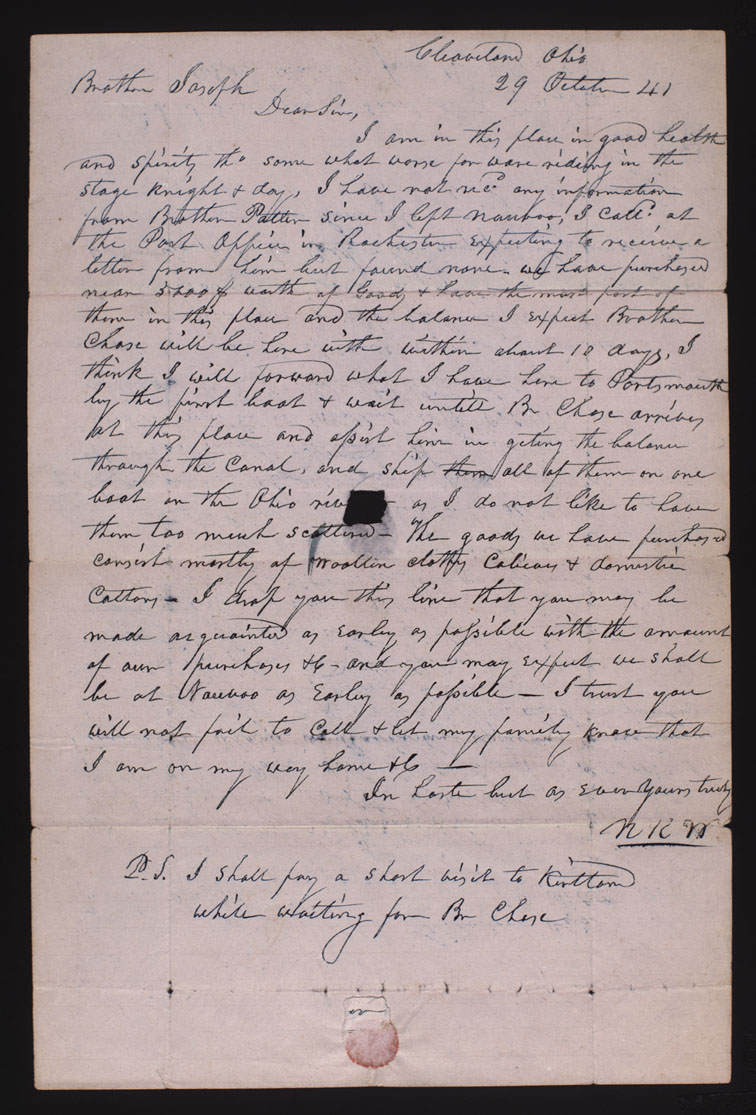 Cleaveland Ohio
29 October 41
Brother Joseph
Dear Sir,
I am in this place in good health
and spirits tho some what worse for ware riding in the
stage knight & day, I have not recd. any information
from Brother Patten since I left Nauvoo, I calld. at
the Post Office in Rochester expecting to receive a
letter from him but found none. we have purchased
near 5000$ worth of Goods & have the most part of
them in this place and the balance I expect Brother
Chase will be here with within about 10 days, I
think I will forward what I have here to Portsmouth
by the first boat & wait untill Br Chase arrives
at this place and assist him in geting the balance
through the Canal, and ship them all of them on one
boat on the Ohio as I do not like to have
them too much scattered - The goods we have purchased
consist mostly of woollin cloths Calicoes & domestic
Cottons - I drop you this line that you may be
made acquainted as Earley as possible with the amount
of our purchases &c - and you may expect we shall
be at Nauvoo as Earley as possible - I trust you
will not fail to call & let my family know that
I am on my way home &c -
In haste but as ever yours truly
N K W
P.S. I shall pay a short visit to Kirtland
while waiting for Br Chase